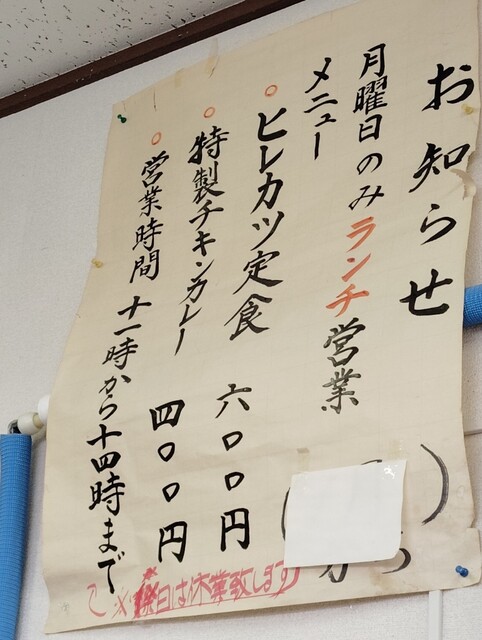 お知らせ
月曜日のみランチ営業
メニュー
ヒレカツ定食 六〇〇円
特製チキンカレー 四〇〇円
営業時間 十一時から十四時まで
日は休業致します